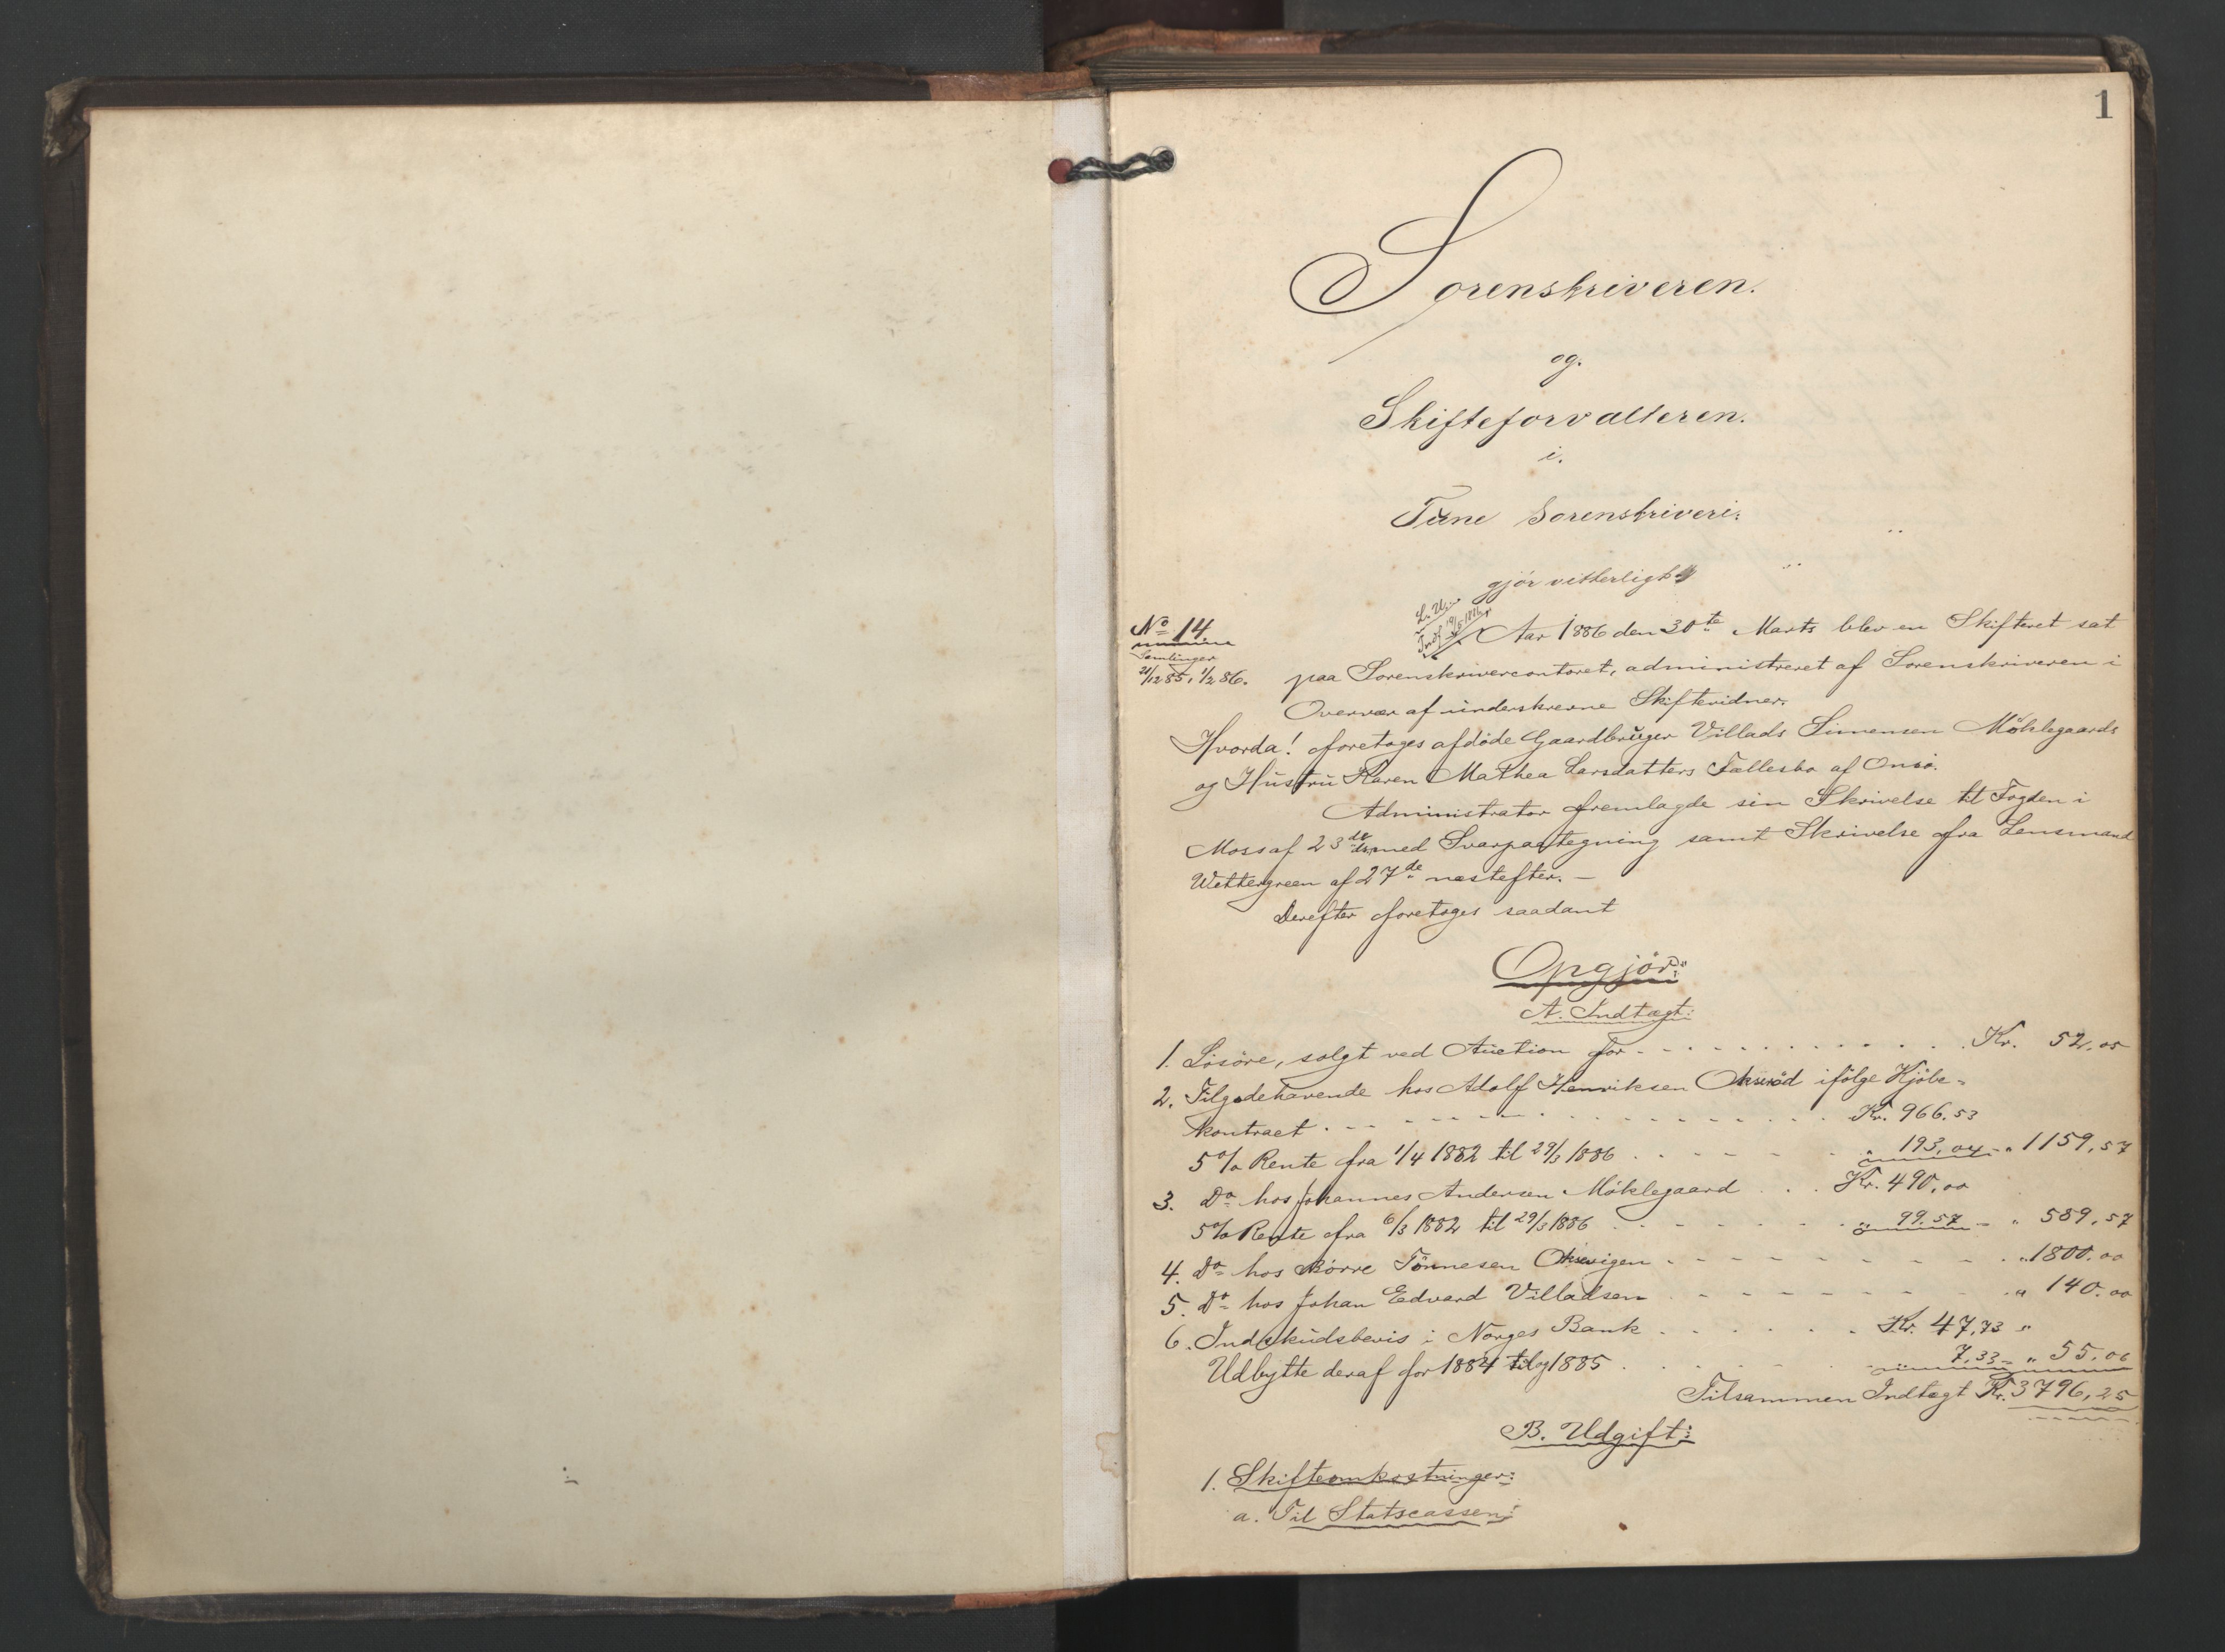 1
Sorenskriveren.
og.
Skifteforvalteren.
i.
Tune Sorenskriveri:
gjør vitterligt
No 14.
Samlinger
21/12 85, 1/2 86.
Aar 1886 den 30te Marts blev en Skifteret sat
paa Sorenskrivercontoret, administreret af Sorenskriveren i
Overvær af underskrevne Skiftevidner.
Hvorda! foretoges afdøde Gaardbruger Villads Simensen Møklegaards
og Hustru Karen Mathea Larsdatters Fællesbo af Onsø.
Administrator fremlagde sin Skrivelse til Fogden i
Moss af 23de ds. med Svarpaategning samt Skrivelse fra Lensmand
Wettergreen af 27de næstefter. —
Derefter foretoges saadant
Opgjør:
A. Indtægt:
1. Løsøre, solgt ved Auction for . . . Kr. 52,05
2. Tilgodehavende hos Adolf Henriksen ifølge Kjøbe-
kontract . . . Kr. 966.53
5% Rente fra 1/4 1882 til 29/3 1886 . . . " 193,04 - " 1159,57
3. Do hos Johannes Andersen Møklegaard . . . Kr. 490,00
5% Rente fra 6/3 1882 til 29/3 1886 . . . " 99.57 - " 589,57
4. Do hos Børre Tønnesen . . . " 1800.00
5. Do hos Johan Edvard Villadsen . . . " 140.00
6. Indskudsbevis i Norges Bank . . . Kr. 47,73 "
Udbytte deraf for 1884 og 1885 . . . 7,33 - " 55,06
Tilsammen Indtægt Kr. 3796,25
B. Udgift:
1. Skifteomkostninger:
a. Til Statscassen: